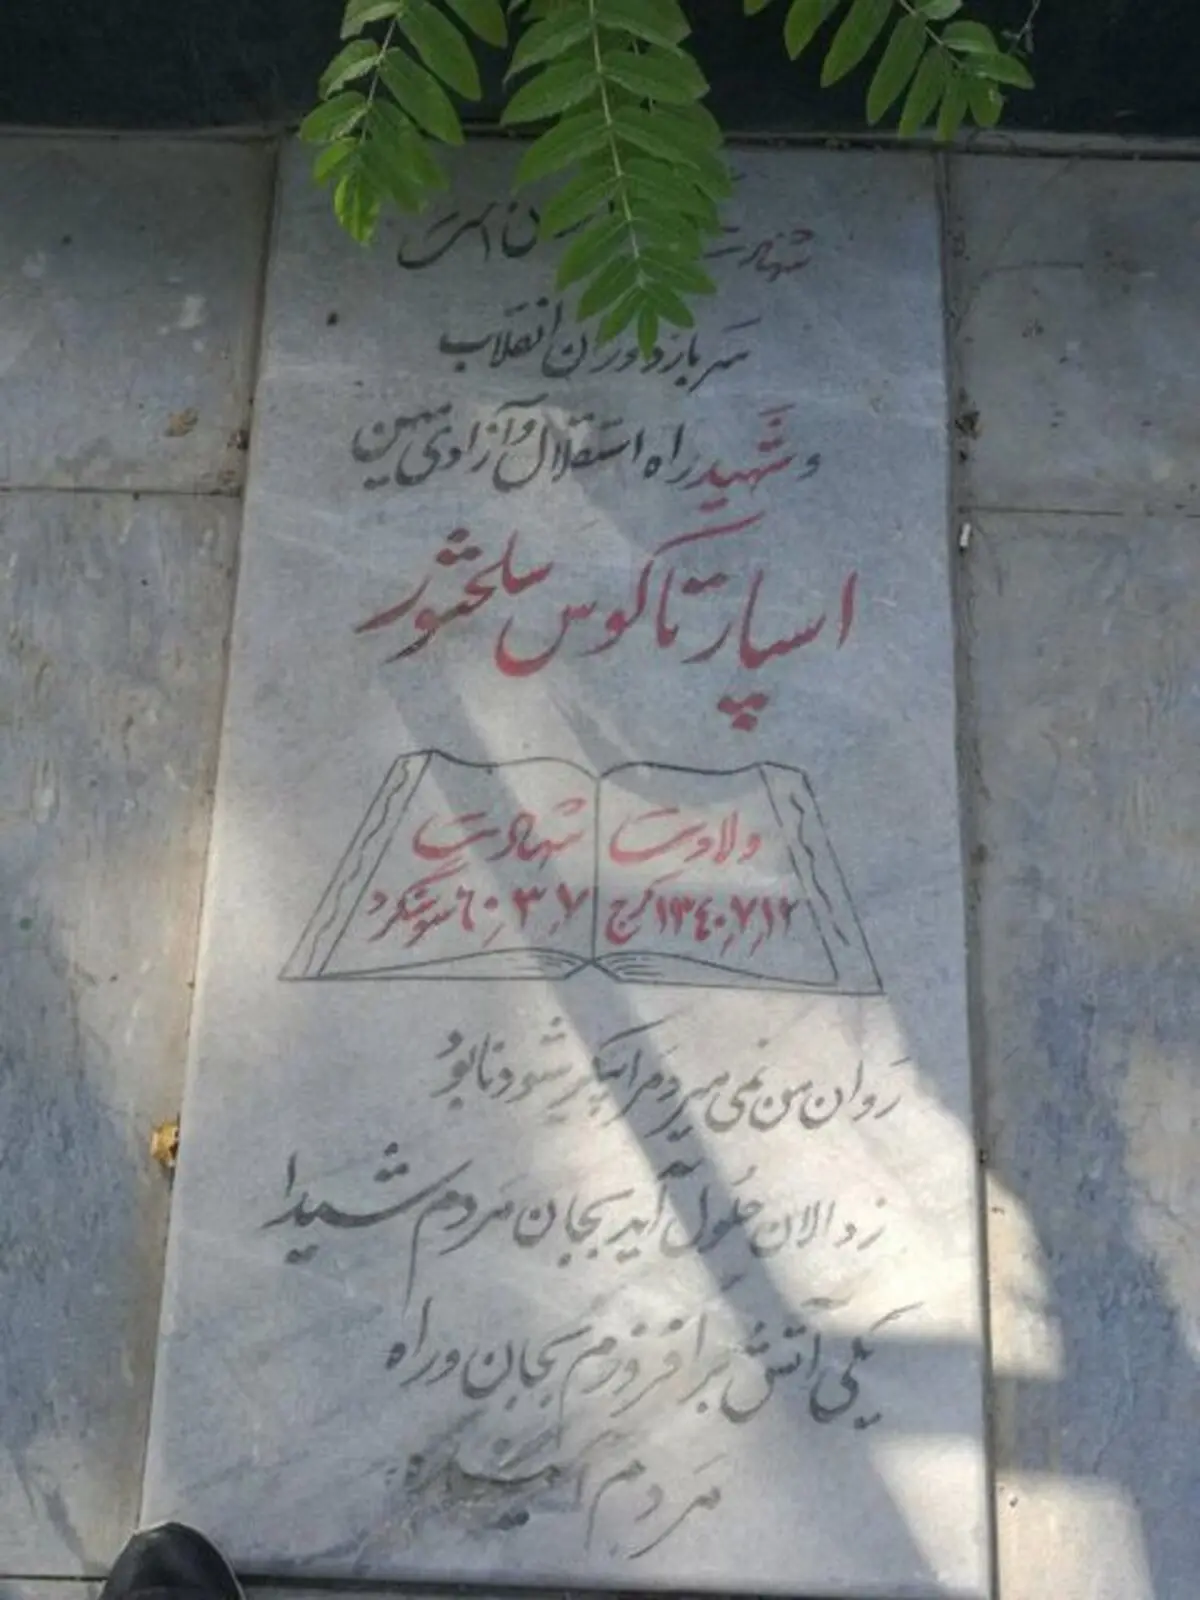 شهادت ن است
سرباز دوران انقلاب
و شهید راه استقلال و آزادی میهن
اسپارتاکوس سلحشور
ولادت
۱۳۴۰٫۷٫۱۲ کرج
شهادت
۶۰٫۳٫۷ سوسنگرد
روان من نمی میرد مرا پیکر شود نابود
آید بجان مردم شیدا
یکی آتش برافروزم بجان و راه
مردم